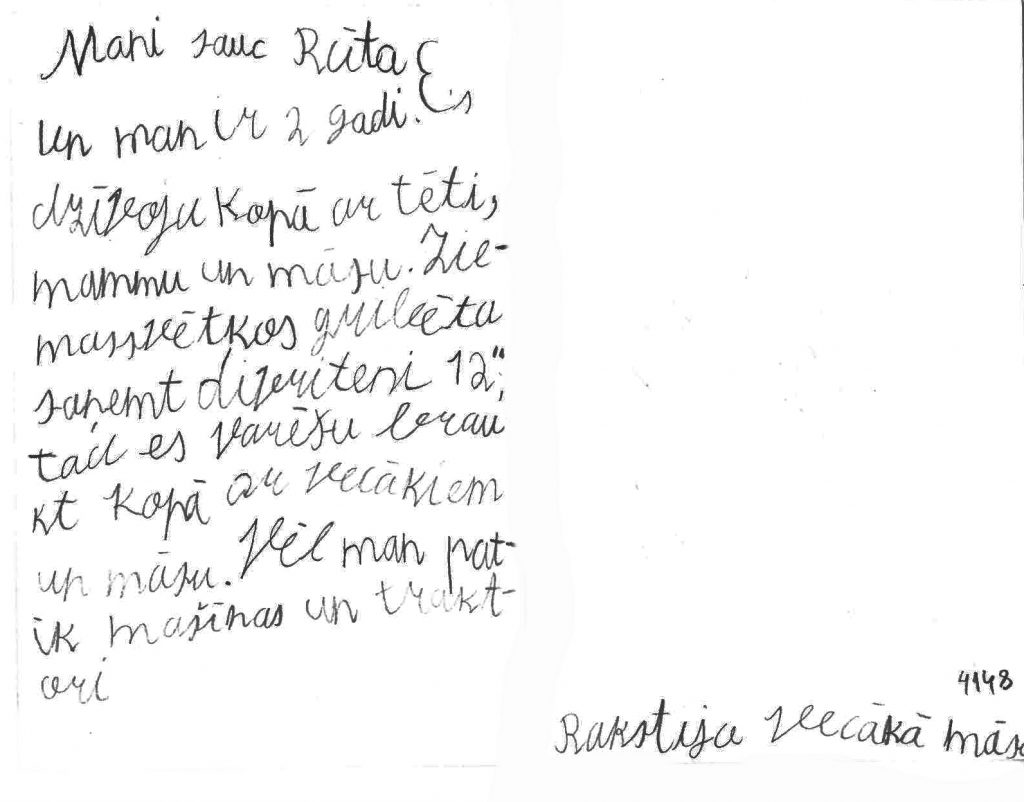 Mani sauc Rūta
un man ir 2 gadi. Es
dzīvoju kopā ar tēti,
mammu un māsu. Zie-
massvētkos gribētu
saņemt divriteni 12",
tad es varēšu brau
kt kopā ar vecākiem
un māsu. Vēl man pat-
ik mašīnas un trakt-
ori
4148
Rakstija vecākā mās